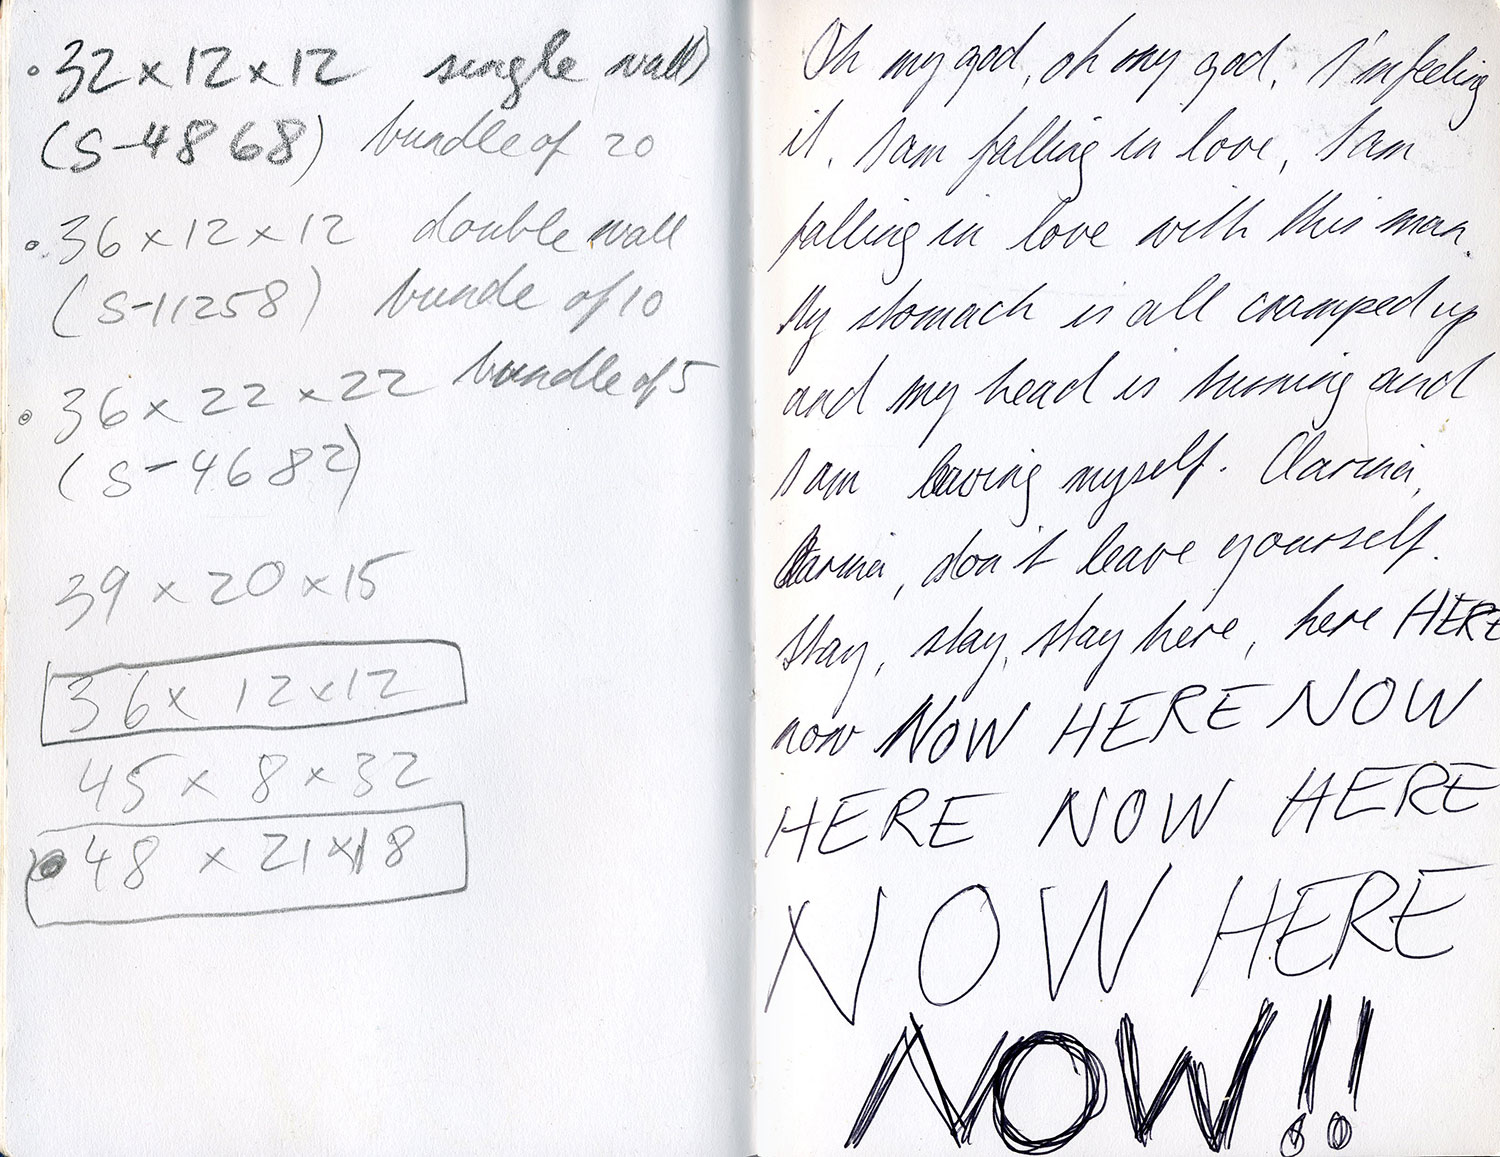 32 x 12 x 12 single wall
(S-4868) bundle of 20
36 x 12 x 12 double wall
(S-11258) bunde of 10
36 x 22 x 22 bundle of 5
(S-4682)
39 x 20 x 15
36 x 12 x 12
45 x 8 x 32
48 x 21 x 18
Oh my god, oh my god, I'm feeling
it. I am falling in love, I am
falling in love with this man.
My stomach is all cramped up
and my head is and
I am leaving myself.
don't leave yourself.
Stay, stay, stay here, here HERE
now NOW HERE NOW
HERE NOW HERE
NOW HERE
NOW!!